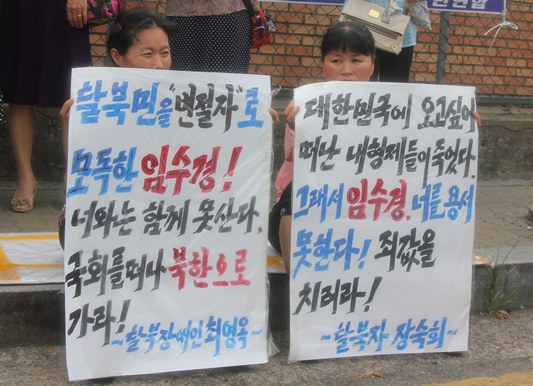 탈북민을 "변절자"로
모독한 임수경!
너와는 함께 못산다.
국회를떠나 북한으로
가라!
~탈북장애인최영옥~
대한민국에 오고싶어
떠난 내형제들이죽었다.
그래서 임수경. 너를 용서
못한다! 죄값을
치러라!
~탈북자 장숙희~